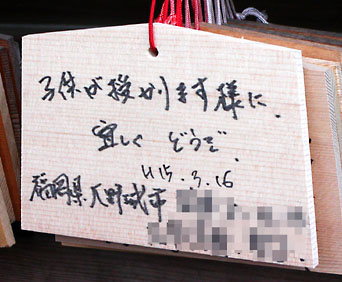 子供が授かります様に.
宜しく どうぞ.
H15.3.16
福岡県大野城市